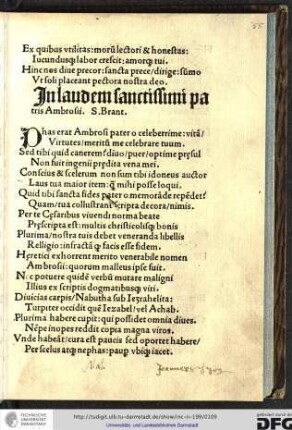 Ex quibus vtilitas: morũ lectori & honestas:
Iucundusqȝ labor crescit: amorqȝ tui.
Hinc nos diue precor: sancta prece/dirige: sũmo
Vt soli placeant pectora nostra deo.
In laudem sanctissimi pa
tris Ambrosii. S. Brant.
Phas erat Ambrosi pater o celeberrime: vitã/
Virtutes/meritũ me celebrare tuum.
Sed tibi quid canerem? diuo/puer/optime pręsul
Non fuit ingenii prędita vena mei.
Conscius & scelerum non sum tibi idoneus auctor
Laus tua maior item: mihi posse loqui.
Quid tibi sancta fides pater o memorãde repẽdet?
Quam/tua collustrant scripta decora/nimis.
Per te Cęsaribus viuendi norma beate
Pręscripta est: multis christicolisqȝ bonis
Plurima/nostra tuis debet veneranda libellis
Relligio: infractã facis esse fidem.
Hęretici exhorrent merito venerabile nomen
Ambrosii: quorum malleus ipse fuit.
Nec potuere quidẽ verbũ mutare maligni
Illius ex scriptis dogmatibusqȝ viri.
Diuicias carpis/Nabutha sub Iezrahelita:
Turpiter occidit quẽ Iezabel/vel Achab.
Plurima habere cupit: qui possidet omnia diues.
Nẽpe inopes reddit copia magna viros.
Vnde habeãt/cura est paucis sed oportet habere/
Per scelus atqȝ nephas: paup vbiqȝ iacet.
TECHNISCHE UNIVERSITÄT DARMSTADT
http://tudigit.ulb.tu-darmstadt.de/show/inc-ii-199/0109
Universitäts- und Landesbibliothek Darmstadt
gefördert durch die
DFG